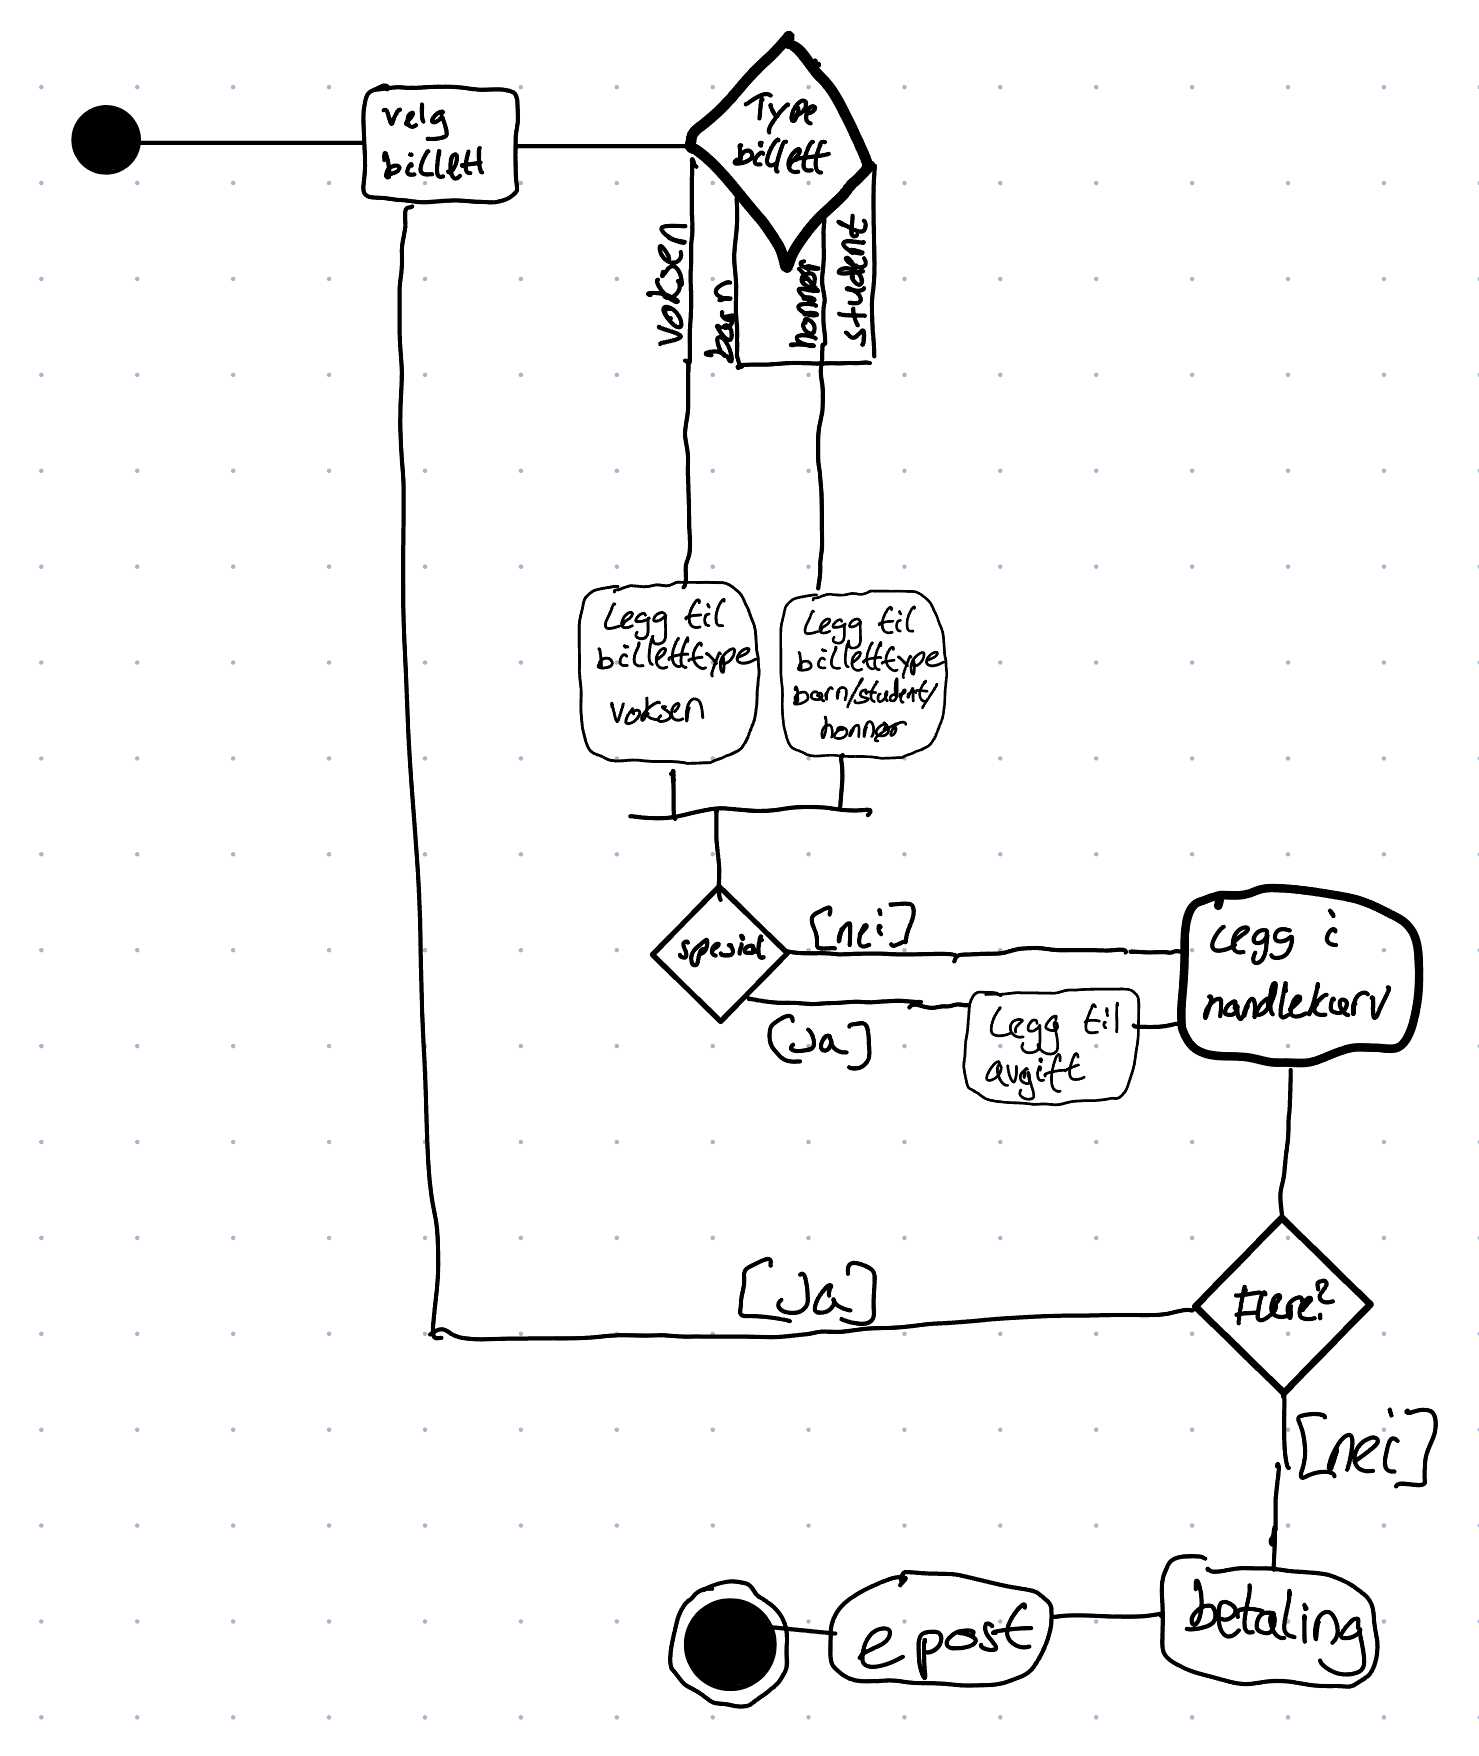 velg
billett
Type
billett
voksen
barn
honnør
student
Legg til
billettype
voksen
Legg til
billettype
barn/student/
honnør
spesial
[nei]
[Ja]
Legg til
avgift
Legg i
handlekurv
Flere?
[Ja]
[nei]
betaling
epost